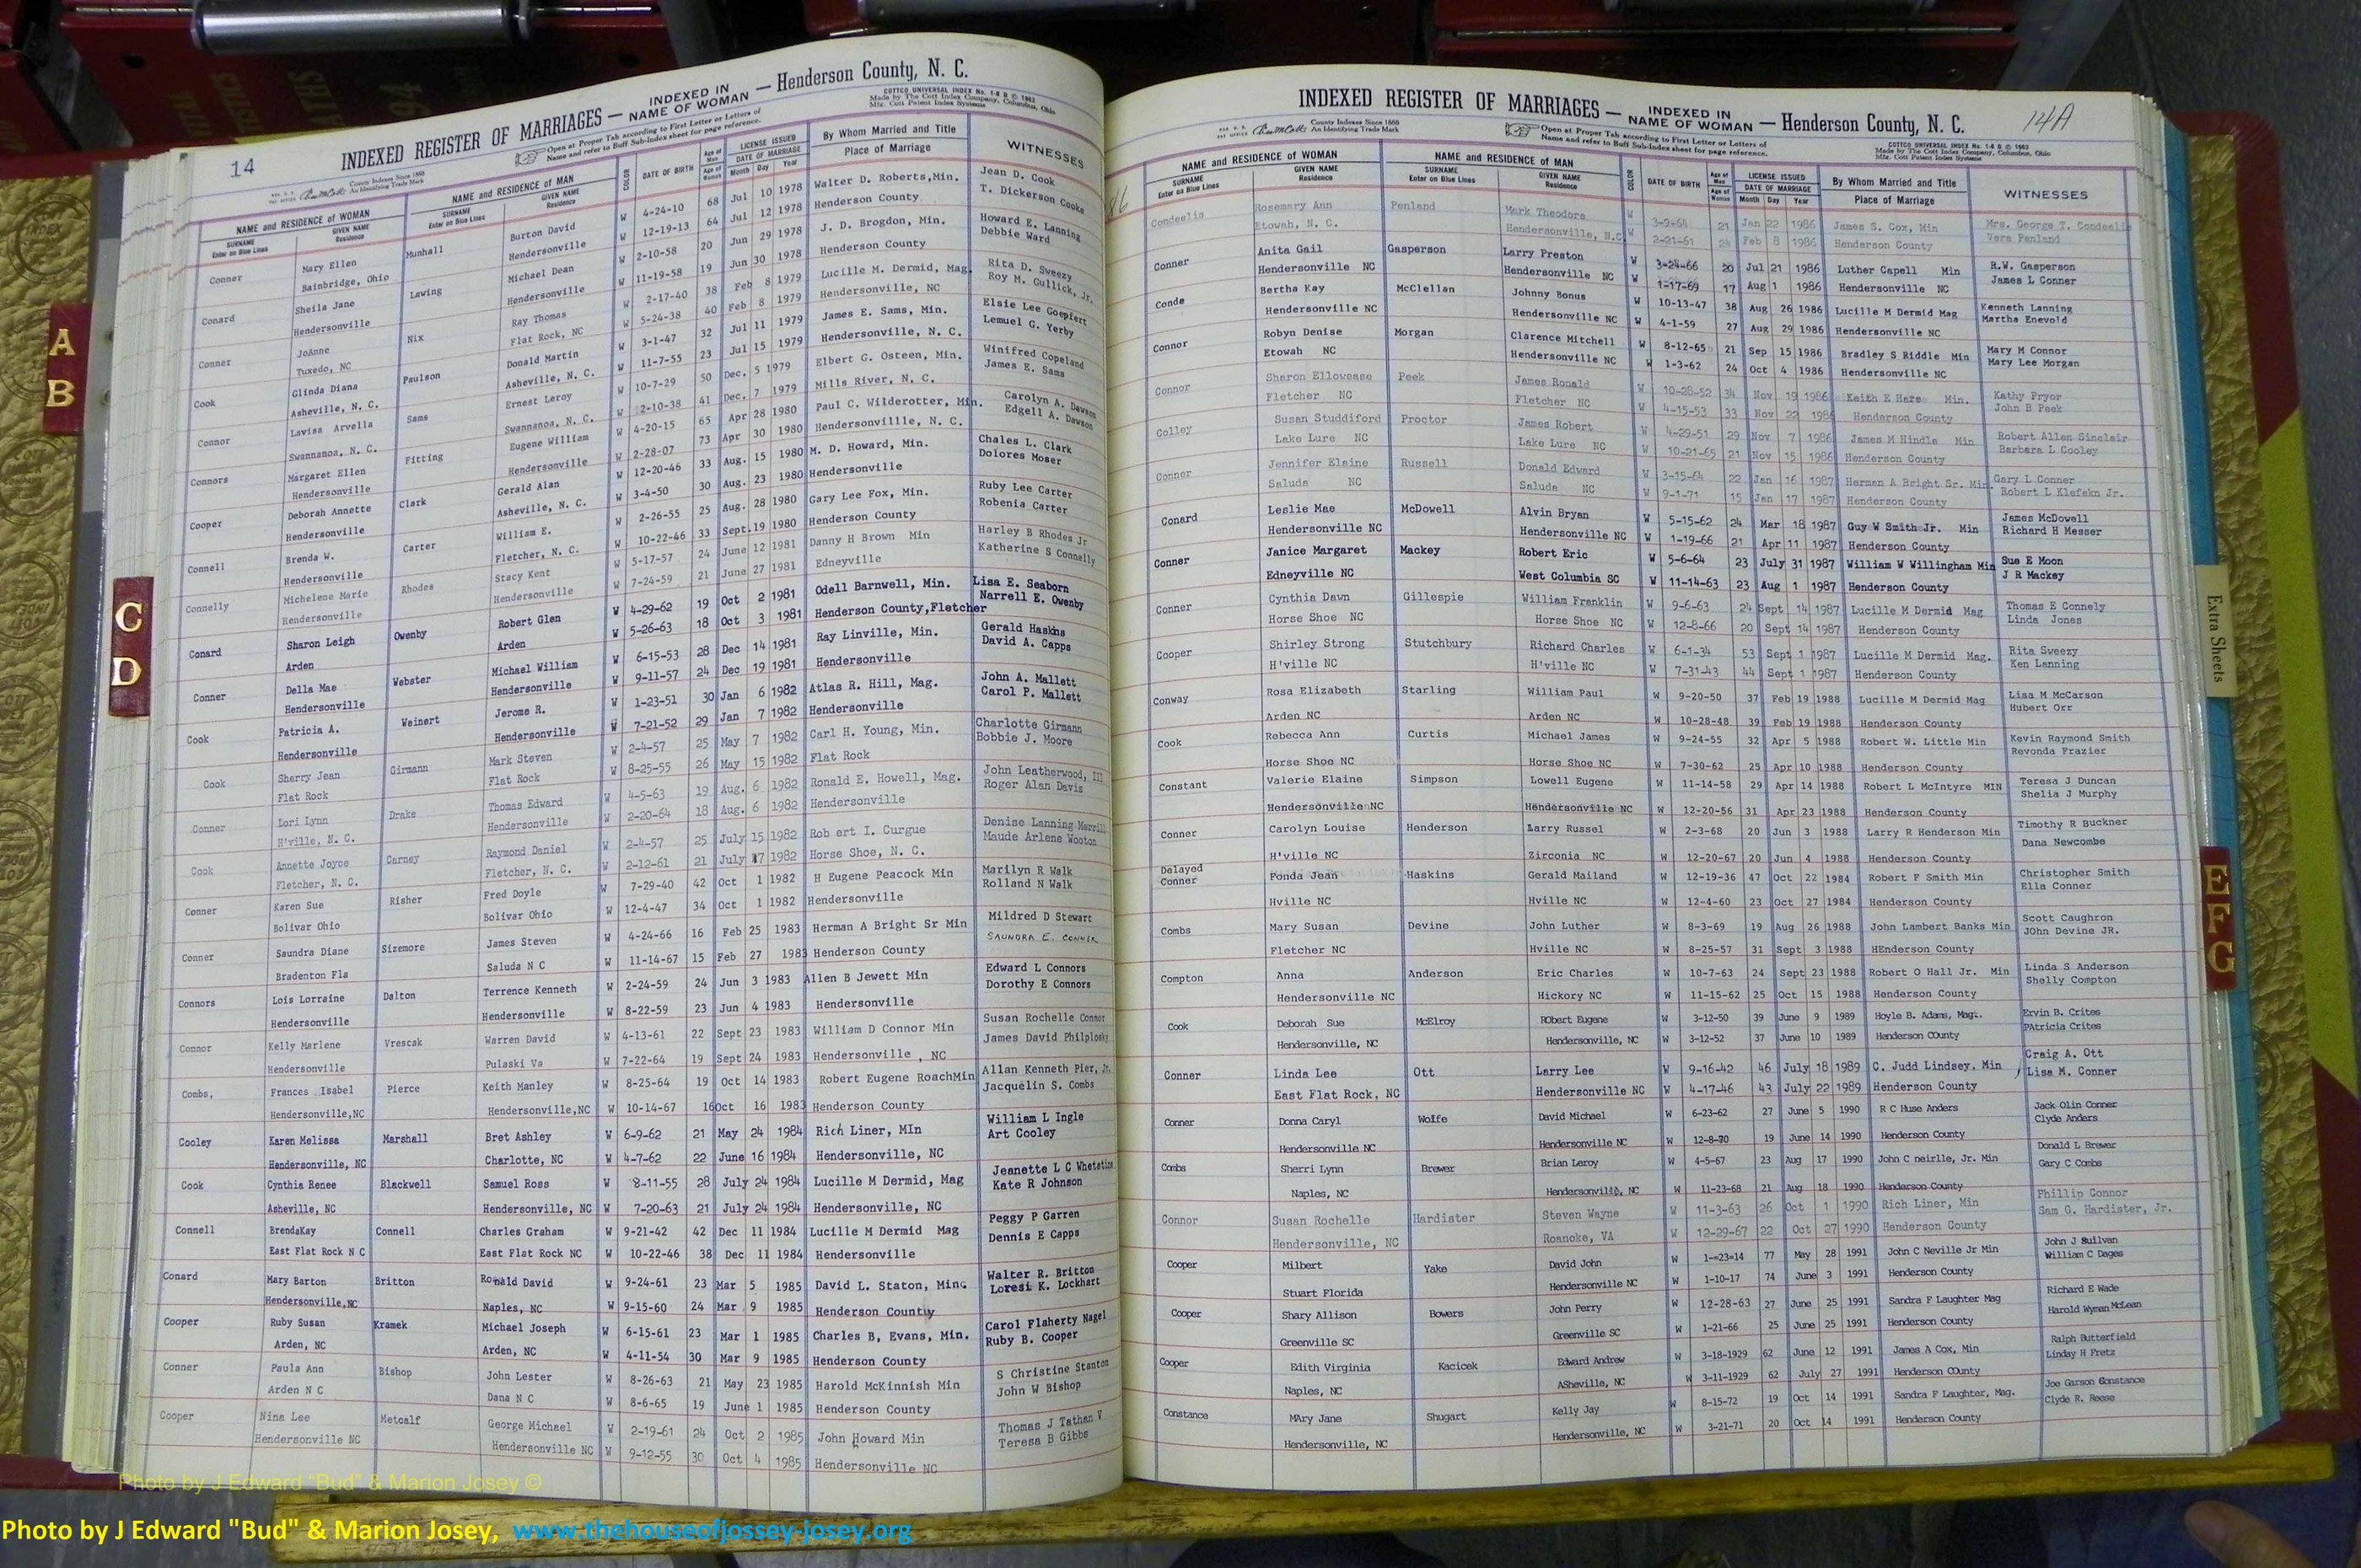 14
INDEXED REGISTER OF MARRIAGES — INDEXED IN NAME OF WOMAN — Henderson County, N. C.
Open at Proper Tab according to First Letter or Letters of
Name and refer to Buff Sub-Index sheet for page reference.
COTTCO UNIVERSAL INDEX No. 1-8 B © 1963
Made by The Cott Index Company, Columbus, Ohio
Mfg. Cott Patent Index Systems
County Indexes Since 1888
An Identifying Trade Mark
NAME and RESIDENCE OF WOMAN NAME and RESIDENCE OF MAN COLOR DATE OF BIRTH Age of Man LICENSE ISSUED By Whom Married and Title WITNESSES
SURNAME GIVEN NAME SURNAME GIVEN NAME Age of Woman DATE OF MARRIAGE Place of Marriage
Enter on Blue Lines Residence Enter on Blue Lines Residence Month Day Year
Conner Mary Ellen Munhall Burton David W 4-24-10 68 Jul 10 1978 Walter D. Roberts,Min. Jean D. Cook
Bainbridge, Ohio Hendersonville W 12-19-13 64 Jul 12 1978 Henderson County T. Dickerson Cooke
Conard Sheila Jane Lawing Michael Dean W 2-10-58 20 Jun 29 1978 J. D. Brogdon, Min. Howard E. Lanning
Hendersonville Hendersonville W 11-19-58 19 Jun 30 1978 Henderson County Debbie Ward
Conner JoAnne Nix Ray Thomas W 2-17-40 38 Feb 8 1979 Lucille M. Dermid, Mag. Rita D. Sweezy
Tuxedo, NC Flat Rock, NC W 5-24-38 40 Feb 8 1979 Hendersonville, NC Roy M. Gullick, Jr.
Cook Glinda Diana Paulson Donald Martin W 3-1-47 32 Jul 11 1979 James E. Sams, Min. Elsie Lee Goepfert
Asheville, N. C. Asheville, N. C. W 11-7-55 23 Jul 15 1979 Hendersonville, N. C. Lemuel G. Yerby
Connor Lavisa Arvella Sams Ernest Leroy W 10-7-29 50 Dec. 5 1979 Elbert G. Osteen, Min. Winifred Copeland
Swannanoa, N. C. Swannanoa, N. C. W 12-10-38 41 Dec. 7 1979 Mills River, N. C. James E. Sams
Connors Margaret Ellen Fitting Eugene William W 4-20-15 65 Apr 28 1980 Paul C. Wilderotter, Min. Carolyn A. Dawson
Hendersonville Hendersonville W 2-28-07 73 Apr 30 1980 Hendersonvillle, N. C. Edgell A. Dawson
Cooper Deborah Annette Clark Gerald Alan W 12-20-46 33 Aug. 15 1980 M. D. Howard, Min. Chales L. Clark
Hendersonville Asheville, N. C. W 3-4-50 30 Aug. 23 1980 Hendersonville Dolores Moser
Connell Brenda W. Carter William E. W 2-26-55 25 Aug. 28 1980 Gary Lee Fox, Min. Ruby Lee Carter
Hendersonville Fletcher, N. C. W 10-22-46 33 Sept.19 1980 Henderson County Robenia Carter
Connelly Michelene Marie Rhodes Stacy Kent W 5-17-57 24 June 12 1981 Danny H Brown Min Harley B Rhodes Jr
Hendersonville Hendersonville W 7-24-59 21 June 27 1981 Edneyville Katherine S Connelly
Conard Sharon Leigh Owenby Robert Glen W 4-29-62 19 Oct 2 1981 Odell Barnwell, Min. Lisa E. Seaborn
Arden Arden W 5-26-63 18 Oct 3 1981 Henderson County,Fletcher Narrell E. Owenby
Conner Della Mae Webster Michael William W 6-15-53 28 Dec 14 1981 Ray Linville, Min. Gerald Haskins
Hendersonville Hendersonville W 9-11-57 24 Dec 19 1981 Hendersonville David A. Capps
Cook Patricia A. Weinert Jerome R. W 1-23-51 30 Jan 6 1982 Atlas R. Hill, Mag. John A. Mallett
Hendersonville Hendersonville W 7-21-52 29 Jan 7 1982 Hendersonville Carol P. Mallett
Cook Sherry Jean Girmann Mark Steven W 2-4-57 25 May 7 1982 Carl H. Young, Min. Charlotte Girmann
Flat Rock Flat Rock W 8-25-55 26 May 15 1982 Flat Rock Bobbie J. Moore
Conner Lori Lynn Drake Thomas Edward W 4-5-63 19 Aug. 6 1982 Ronald E. Howell, Mag. John Leatherwood, III
H'ville, N. C. Hendersonville W 2-20-64 18 Aug. 6 1982 Hendersonville Roger Alan Davis
Cook Annette Joyce Carney Raymond Daniel W 2-4-57 25 July 15 1982 Rob ert I. Curgue Denise Lanning Merrill
Fletcher, N. C. Fletcher, N. C. W 2-12-61 21 July 17 1982 Horse Shoe, N. C. Maude Arlene Wooton
Conner Karen Sue Risher Fred Doyle W 7-29-40 42 Oct 1 1982 H Eugene Peacock Min Marilyn R Walk
Bolivar Ohio Bolivar Ohio W 12-4-47 34 Oct 1 1982 Hendersonville Rolland N Walk
Conner Saundra Diane Sizemore James Steven W 4-24-66 16 Feb 25 1983 Herman A Bright Sr Min Mildred D Stewart
Bradenton Fla Saluda N C W 11-14-67 15 Feb 27 1983 Henderson County SAUNDRA E. CONNER
Connors Lois Lorraine Dalton Terrence Kenneth W 2-24-59 24 Jun 3 1983 Allen B Jewett Min Edward L Connors
Hendersonville Hendersonville W 8-22-59 23 Jun 4 1983 Hendersonville Dorothy E Connors
Connor Kelly Marlene Vrescak Warren David W 4-13-61 22 Sept 23 1983 William D Connor Min Susan Rochelle Connor
Hendersonville Pulaski Va W 7-22-64 19 Sept 24 1983 Hendersonville , NC James David Philplosky
Combs, Frances Isabel Pierce Keith Manley W 8-25-64 19 Oct 14 1983 Robert Eugene RoachMin Allan Kenneth Pier, Jr.
Hendersonville,NC Hendersonville,NC W 10-14-67 16Oct 16 1983 Henderson County Jacquelin S. Combs
Cooley Karen Melissa Marshall Bret Ashley W 6-9-62 21 May 24 1984 Rich Liner, MIn William L Ingle
Hendersonville, NC Charlotte, NC W 4-7-62 22 June 16 1984 Hendersonville, NC Art Cooley
Cook Cynthia Renee Blackwell Samuel Ross W 8-11-55 28 July 24 1984 Lucille M Dermid, Mag Jeanette L C Whetstine
Asheville, NC Hendersonville, NC W 7-20-63 21 July 24 1984 Hendersonville, NC Kate R Johnson
Connell BrendaKay Connell Charles Graham W 9-21-42 42 Dec 11 1984 Lucille M Dermid Mag Peggy P Garren
East Flat Rock N C East Flat Rock NC W 10-22-46 38 Dec 11 1984 Hendersonville Dennis E Capps
Conard Mary Barton Britton Ronald David W 9-24-61 23 Mar 5 1985 David L. Staton, Min. Walter R. Britton
Hendersonville,NC Naples, NC W 9-15-60 24 Mar 9 1985 Henderson County Loresi K. Lockhart
Cooper Ruby Susan Kramek Michael Joseph W 6-15-61 23 Mar 1 1985 Charles B, Evans, Min. Carol Flaherty Nagel
Arden, NC Arden, NC W 4-11-54 30 Mar 9 1985 Henderson County Ruby B. Cooper
Conner Paula Ann Bishop John Lester W 8-26-63 21 May 23 1985 Harold McKinnish Min S Christine Stanton
Arden N C Dana N C W 8-6-65 19 June 1 1985 Henderson County John W Bishop
Cooper Nina Lee Metcalf George Michael W 2-19-61 24 Oct 2 1985 John Howard Min Thomas J Tathan V
Hendersonville NC Hendersonville NC W 9-12-55 30 Oct 4 1985 Hendersonville NC Teresa B Gibbs
14A
INDEXED REGISTER OF MARRIAGES — INDEXED IN NAME OF WOMAN — Henderson County, N. C.
County Indexes Since 1888
An Identifying Trade Mark
Open at Proper Tab according to First Letter or Letters of
Name and refer to Buff Sub-Index sheet for page reference.
COTTCO UNIVERSAL INDEX No. 1-8 B © 1963
Made by The Cott Index Company, Columbus, Ohio
Mfg. Cott Patent Index Systems
NAME and RESIDENCE OF WOMAN NAME and RESIDENCE OF MAN COLOR DATE OF BIRTH Age of Man LICENSE ISSUED By Whom Married and Title WITNESSES
SURNAME GIVEN NAME SURNAME GIVEN NAME Age of Woman DATE OF MARRIAGE Place of Marriage
Enter on Blue Lines Residence Enter on Blue Lines Residence Month Day Year
Condeelis Rosemary Ann Penland Mark Theodore W 3-9-64 21 Jan 22 1986 James S. Cox, Min Mrs. George T. Condeelis
Etowah, N. C. Hendersonville, N.C. W 2-21-61 24 Feb 8 1986 Henderson County Vera Penland
Conner Anita Gail Gasperson Larry Preston W 3-24-66 20 Jul 21 1986 Luther Capell Min R.W. Gasperson
Hendersonville NC Hendersonville NC W 1-17-69 17 Aug 1 1986 Hendersonville NC James L Conner
Conde Bertha Kay McClellan Johnny Bonus W 10-13-47 38 Aug 26 1986 Lucille M Dermid Mag Kenneth Lanning
Hendersonville NC Hendersonville NC W 4-1-59 27 Aug 29 1986 Hendersonville NC Martha Enevold
Connor Robyn Denise Morgan Clarence Mitchell W 8-12-65 21 Sep 15 1986 Bradley S Riddle Min Mary M Connor
Etowah NC Hendersonville NC W 1-3-62 24 Oct 4 1986 Hendersonville NC Mary Lee Morgan
Connor Sharon Ellowease Peek James Ronald W 10-28-52 34 Nov 19 1986 Keith E Hare Min. Kathy Pryor
Fletcher NC Fletcher NC W 4-15-53 33 Nov 22 1986 Henderson County John B Peek
Colley Susan Studdiford Proctor James Robert W 4-29-51 29 Nov 7 1986 James M Hindle Min Robert Allen Sinclair
Lake Lure NC Lake Lure NC W 10-21-65 21 Nov 15 1986 Henderson County Barbara L Cooley
Conner Jennifer Elaine Russell Donald Edward W 3-15-64 22 Jan 16 1987 Herman A Bright Sr. Min. Gary L Conner
Saluda NC Saluda NC W 9-1-71 15 Jan 17 1987 Henderson County Robert L Klefekn Jr.
Conard Leslie Mae McDowell Alvin Bryan W 5-15-62 24 Mar 18 1987 Guy W Smith Jr. Min James McDowell
Hendersonville NC Hendersonville NC W 1-19-66 21 Apr 11 1987 Henderson County Richard H Messer
Conner Janice Margaret Mackey Robert Eric W 5-6-64 23 July 31 1987 William W Willingham Min Sue E Moon
Edneyville NC West Columbia SC W 11-14-63 23 Aug 1 1987 Henderson County J R Mackey
Conner Cynthia Dawn Gillespie William Franklin W 9-6-63 24 Sept 14 1987 Lucille M Dermid Mag Thomas E Connely
Horse Shoe NC Horse Shoe NC W 12-8-66 20 Sept 14 1987 Henderson County Linda Jones
Cooper Shirley Strong Stutchbury Richard Charles W 6-1-34 53 Sept 1 1987 Lucille M Dermid Mag. Rita Sweezy
H'ville NC H'ville NC W 7-31-43 44 Sept 1 1987 Henderson County Ken Lanning
Conway Rosa Elizabeth Starling William Paul W 9-20-50 37 Feb 19 1988 Lucille M Dermid Mag Lisa M McCarson
Arden NC Arden NC W 10-28-48 39 Feb 19 1988 Henderson County Hubert Orr
Cook Rebecca Ann Curtis Michael James W 9-24-55 32 Apr 5 1988 Robert W. Little Min Kevin Raymond Smith
Horse Shoe NC Horse Shoe NC W 7-30-62 25 Apr 10 1988 Henderson County Revonda Frazier
Constant Valerie Elaine Simpson Lowell Eugene W 11-14-58 29 Apr 14 1988 Robert L McIntyre MIN Teresa J Duncan
Hendersonville NC Hendersonville NC W 12-20-56 31 Apr 23 1988 Henderson County Shelia J Murphy
Conner Carolyn Louise Henderson Larry Russel W 2-3-68 20 Jun 3 1988 Larry R Henderson Min Timothy R Buckner
H'ville NC Zirconia NC W 12-20-67 20 Jun 4 1988 Henderson County Dana Newcombe
Delayed
Conner Fonda Jean Haskins Gerald Mailand W 12-19-36 47 Oct 22 1984 Robert F Smith Min Christopher Smith
Hville NC Hville NC W 12-4-60 23 Oct 27 1984 Henderson County Ella Conner
Combs Mary Susan Devine John Luther W 8-3-69 19 Aug 26 1988 John Lambert Banks Min Scott Caughron
Fletcher NC Hville NC W 8-25-57 31 Sept 3 1988 HEnderson County JOhn Devine JR.
Compton Anna Anderson Eric Charles W 10-7-63 24 Sept 23 1988 Robert O Hall Jr. Min Linda S Anderson
Hendersonville NC Hickory NC W 11-15-62 25 Oct 15 1988 Henderson County Shelly Compton
Cook Deborah Sue McElroy RObert Eugene W 3-12-50 39 June 9 1989 Hoyle B. Adams, Mag. Ervin B. Crites
Hendersonville, NC Hendersonville, NC W 3-12-52 37 June 10 1989 Henderson COunty PAtricia Crites
Conner Linda Lee Ott Larry Lee W 9-16-42 46 July 18 1989 C. Judd Lindsey. Min Craig A. Ott
East Flat Rock, NC Hendersonville NC W 4-17-46 43 July 22 1989 Henderson County Lisa M. Conner
Conner Donna Caryl Wolfe David Michael W 6-23-62 27 June 5 1990 R C Huse Anders Jack Olin Conner
Hendersonville NC Hendersonville NC W 12-8-70 19 June 14 1990 Henderson County Clyde Anders
Combs Sherri Lynn Brewer Brian Leroy W 4-5-67 23 Aug 17 1990 John C neirlle, Jr. Min Donald L Brewer
Naples, NC Hendersonville, NC W 11-23-68 21 Aug 18 1990 Henderson County Gary C Combs
Connor Susan Rochelle Hardister Steven Wayne W 11-3-63 26 Oct 1 1990 Rich Liner, Min Phillip Connor
Hendersonville, NC Roanoke, VA W 12-29-67 22 Oct 27 1990 Henderson County Sam G. Hardister, Jr.
Cooper Milbert Yake David John W 1--23-14 77 May 28 1991 John C Neville Jr Min John J Sullvan
Stuart Florida Hendersonville NC W 1-10-17 74 June 3 1991 Henderson County William C Dages
Cooper Shary Allison Bowers John Perry W 12-28-63 27 June 25 1991 Sandra F Laughter Mag Richard E Wade
Greenville SC Greenville SC W 1-21-66 25 June 25 1991 Henderson County Harold Wyman McLean
Cooper Edith Virginia Kacicek Edward Andrew W 3-18-1929 62 June 12 1991 James A Cox, Min Ralph Butterfield
Naples, NC ASheville, NC W 3-11-1929 62 July 27 1991 Henderson COunty Linday H Fretz
Constance MAry Jane Shugart Kelly Jay W 8-15-72 19 Oct 14 1991 Sandra F Laughter, Mag. Joe Garson Constance
Hendersonville, NC Hendersonville, NC W 3-21-71 20 Oct 14 1991 Henderson County Clyde R. Reese
A
B
C
D
Extra Sheets
E
F
G
Photo by J Edward "Bud" & Marion Josey ©
Photo by J Edward "Bud" & Marion Josey, www.thehouseofjossey-josey.org